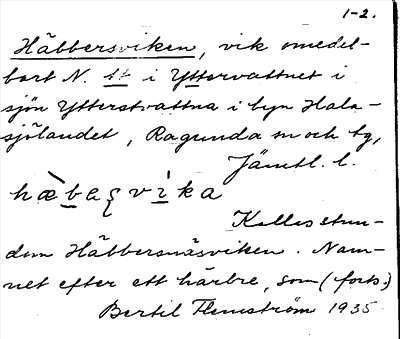 1-2.
Häbbersviken, vik omedel-
bart N. t i Yttervattnet i
sjön Ytterstvattna i byn Hala-
sjölandet, Ragunda sn och tg,
Jämtl. l.
hæ̀baʂvi̇ka
Kallas stun-
dom Häbbersnäsviken. Nam-
net efter ett härbre, som (forts.)
Bertil Flemström 1935